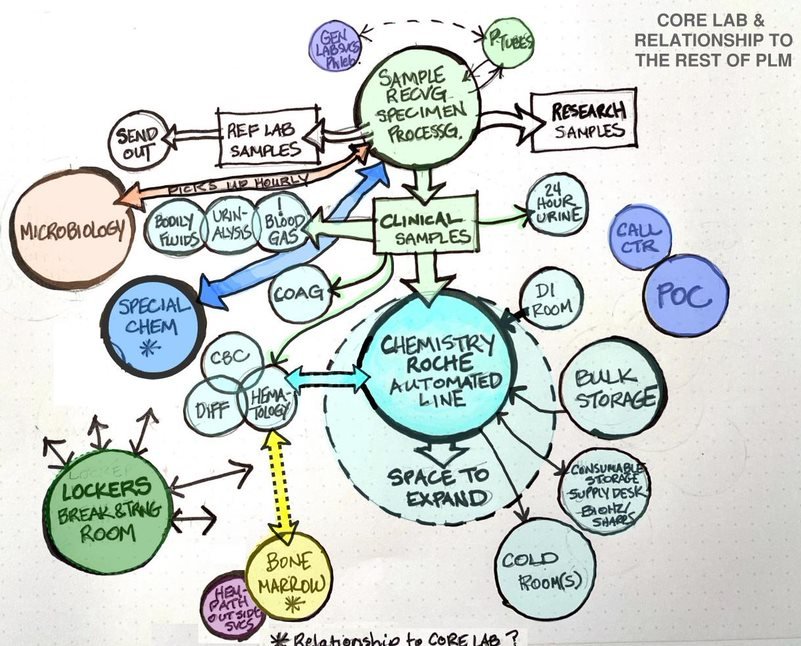 CORE LAB &
RELATIONSHIP TO
THE REST OF PLM
GEN
LAB SVCS
Phleb.
P-TUBES
SAMPLE
RECVG
SPECIMEN
PROCESSG.
SEND
OUT
REF LAB
SAMPLES
RESEARCH
SAMPLES
PICKS UP HOURLY
MICROBIOLOGY
BODILY
FLUIDS
URIN-
ALYSIS
!
BLOOD
GAS
CLINICAL
SAMPLES
24
HOUR
URINE
CALL
CTR
POC
SPECIAL
CHEM
*
COAG
DI
ROOM
CHEMISTRY
ROCHE
AUTOMATED
LINE
CBC
DIFF
HEMA-
TOLOGY
BULK
STORAGE
SPACE TO
EXPAND
CONSUMABLE
STORAGE
SUPPLY DESK
BIOHZ/
SHARPS
LOCKERS
BREAK & TRNG
ROOM
COLD
ROOM(S)
BONE
MARROW
*
HEM-
PATH
OUTSIDE
SVCS
* Relationship to CORE LAB ?